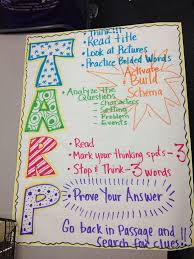 Think!!!
• Read Title
• Look at Pictures
• Practice Bolded Words
T
Activate
& Build
Schema
• Analyze the
Questions
- Characters
- Setting
- Problem
- Events
A
• Read
• Mark your thinking spots - 3
• Stop & Think - 3 words
R
Prove Your Answer
P
Go back in Passage and
Search for clues!